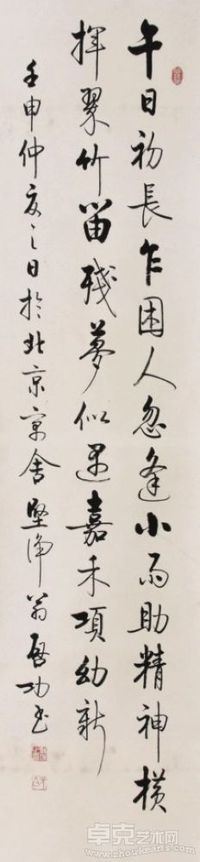 午日初長乍困人忽逢小雨助精神横
揮翠竹留殘夢似遇嘉禾項幼新
壬申仲夏之日於北京寓舍堅净翁啟功書
卓克艺术网